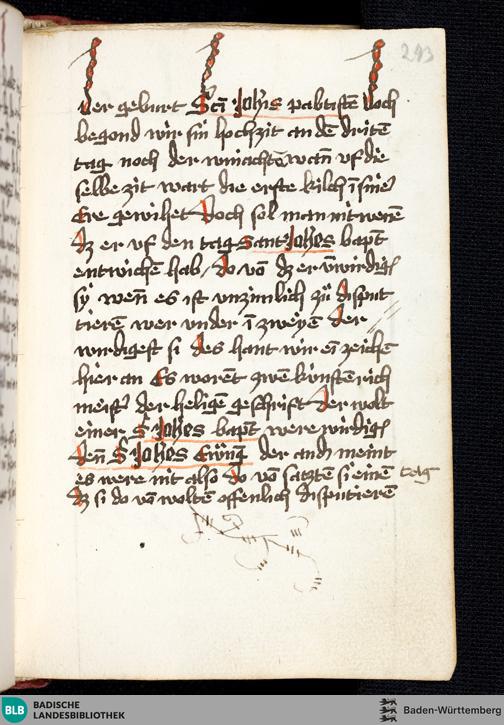 293
der geburt Sāt Joh̄is pabtistē Doch
begond wir sin hochzit an dē dritē
tag noch der winachtē wan̄ vf die
selbe zit wart die erste kilch ī sine
Ere gewihet Doch sol man nit wenē
Dz er vf den tag Sant Joh̄es bapt̄
entwichē hab / do vō dz er vnwirdig
sy wen̄ es ist vnzimlich zů disput
tierē wer vnder ī zweyē der
wirdigest si des hant wir ei zeichē
hier an Es worēt zwē kunstē rich
meist der heligē geschrift Der wolt
einer S Joh̄es bapt̄ were wirdig
den̄ S Joh̄es Ewāg der and meint
es were nit also do vō satztē si einē tag
dz si do vō woltē offenlich disputierē
BLB BADISCHE
LANDESBIBLIOTHEK
Baden-Württemberg